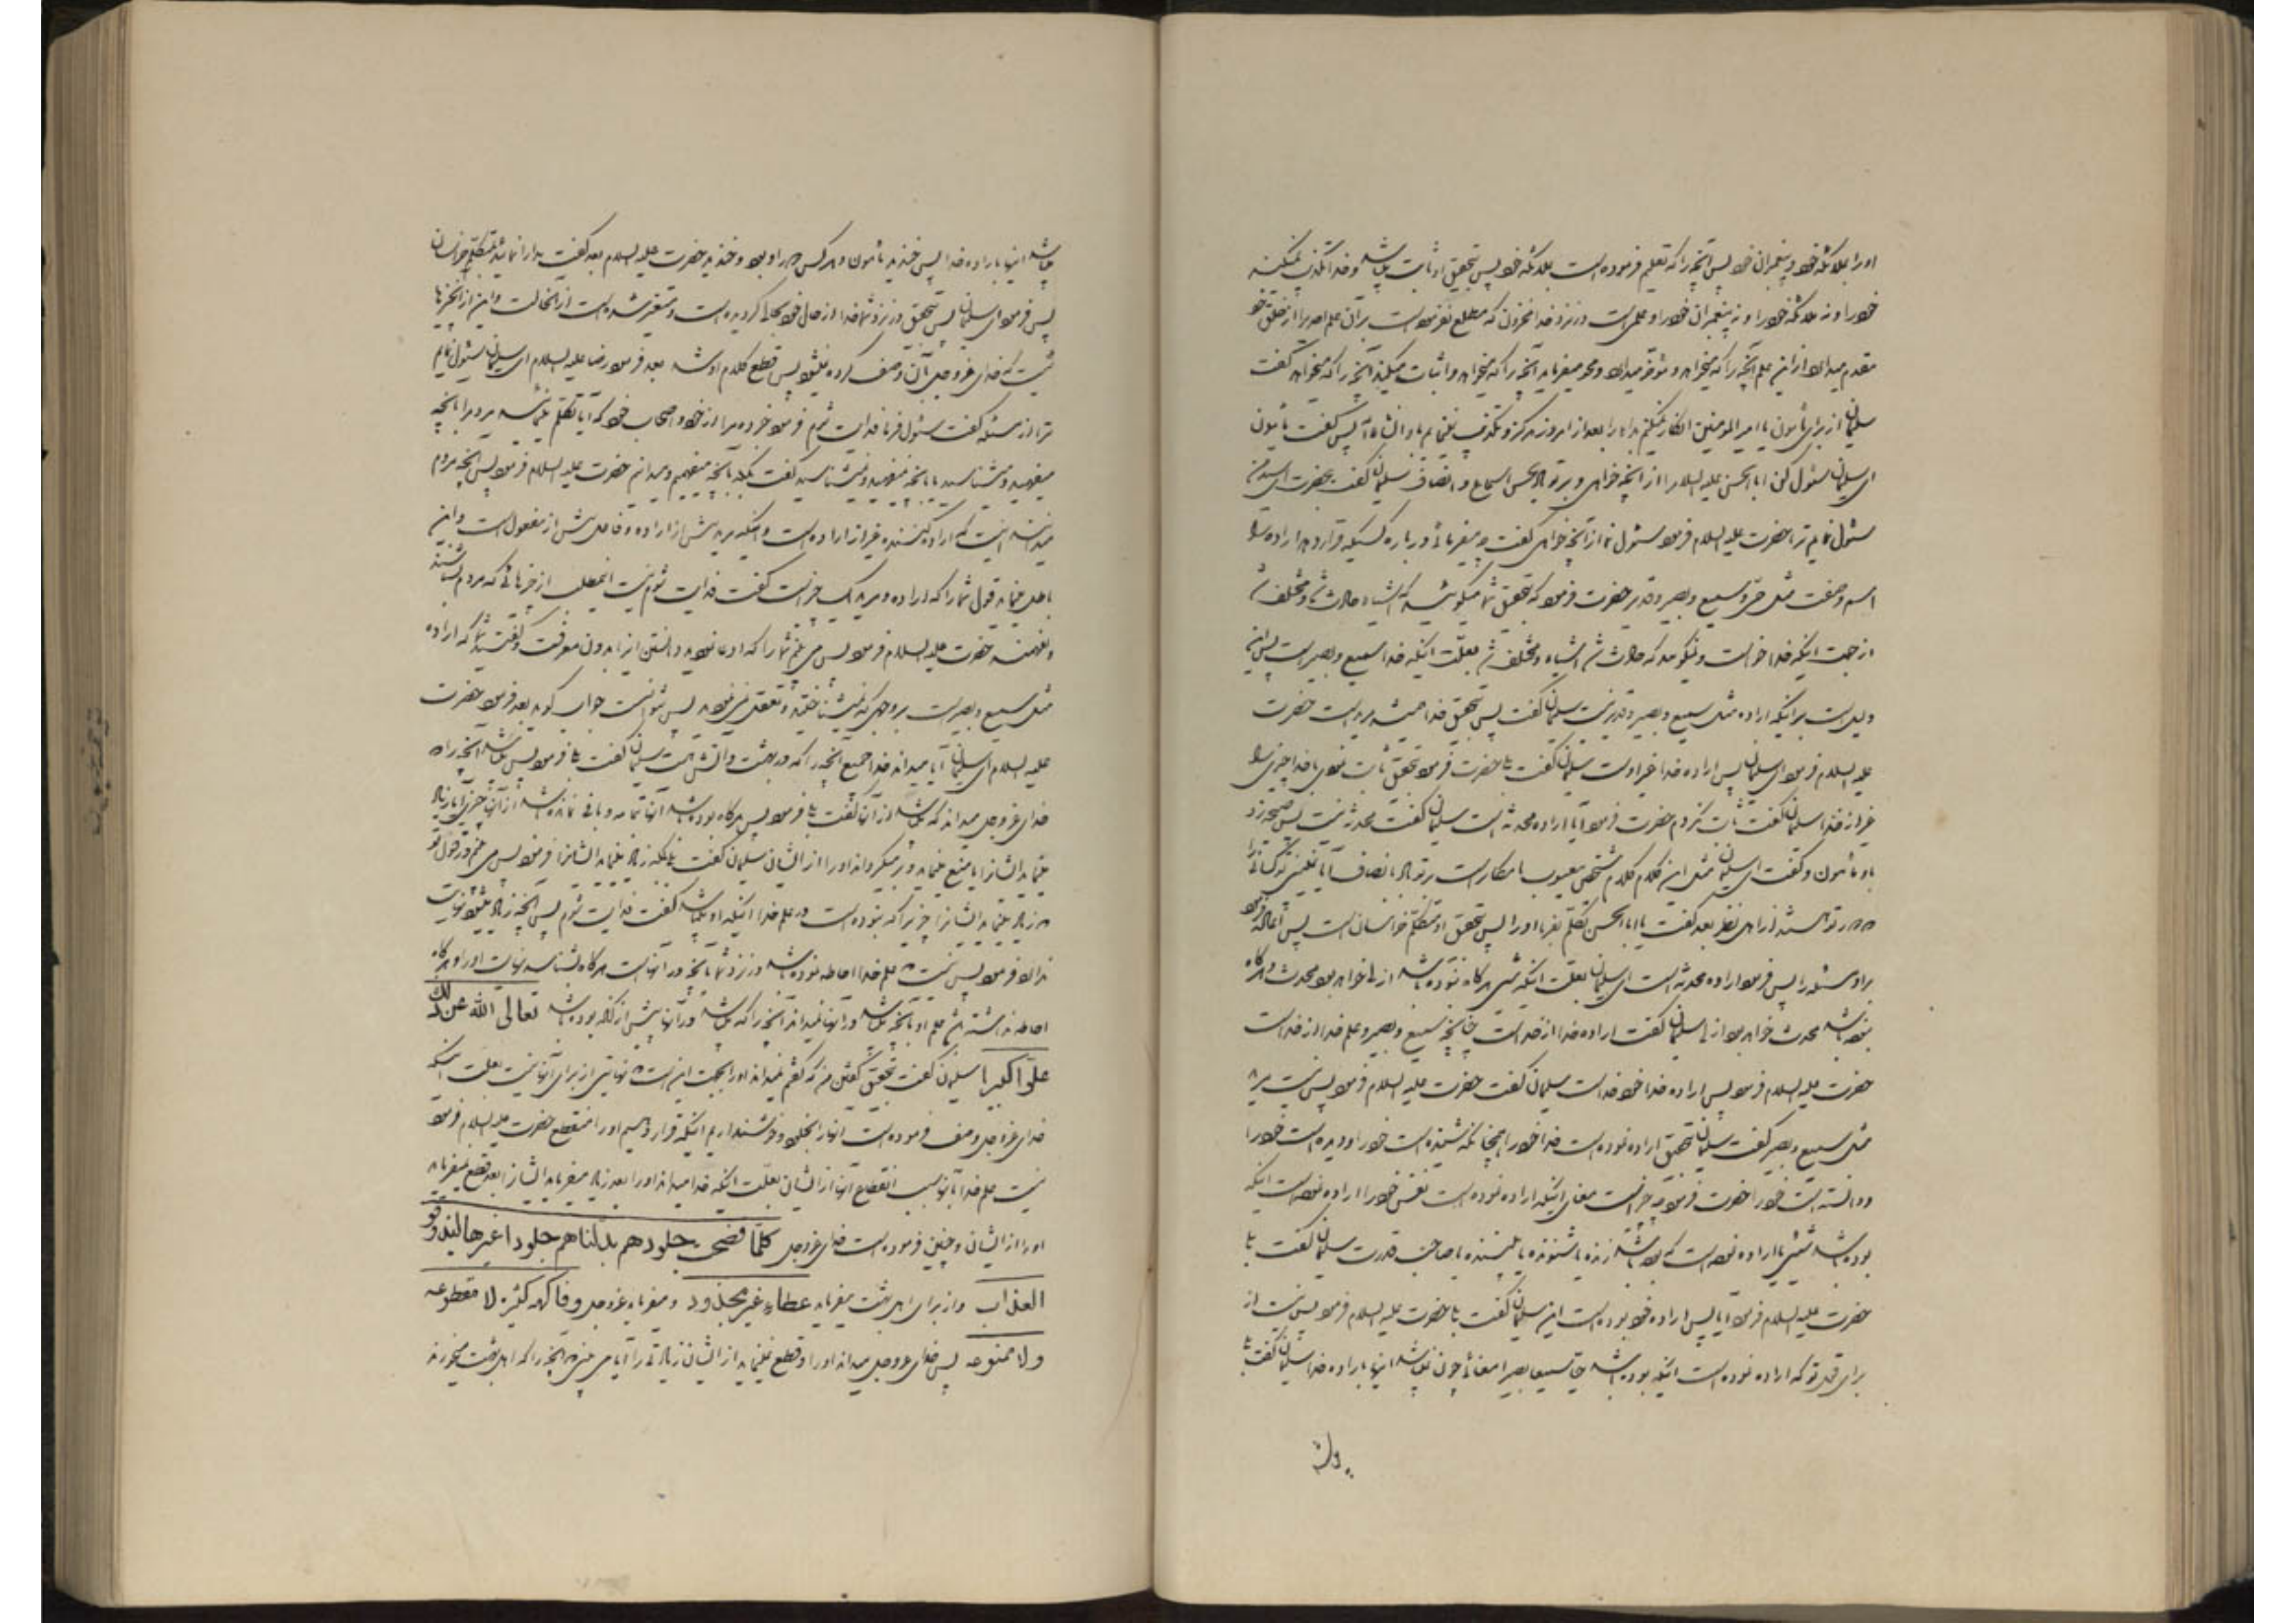 او را بملائکه خود و پیغمبران خود پس آنچه را که تعلیم فرموده است بملائکه خود پس بتحقیق او ثابت باشد و خدا تکذیب نمیکند
خود را و نه ملائکه خود را و نه پیغمبران خود را و علمی است در نزد خدا مخزون که مطلع نفرموده است بر آن علم احدیرا از خلق خود
مقدم میدارد از این علم آنچه را که میخواهد و مؤخر میدارد و محو میفرماید آنچه را که میخواهد و اثبات میکند آنچه را که میخواهد گفت
سلیمان از برای مأمون یا امیر المؤمنین انکار نمیکنم بدا را بعد از امروز هرگز و تکذیب نمینمایم باو انشاء الله پس گفت مأمون
ای سلیمان سئول کن ابا الحسن علیه السلام را از آنچه خواهی و بر تو باد بحسن استماع و انصاف سلیمان گفت بحضرت ای سید من
سئول نمایم ترا حضرت علیه السلام فرمود سئول نما از آنچه خواهی گفت چه میفرمائی در باره کسیکه قرار دهد اراده را
اسم و صفت مثل حی و سمیع و بصیر و قدیر حضرت فرمود که بتحقیق شما میگوئید که اشیاء حادث شد و مختلف شد
از جهت اینکه خدا خواست و نمیگوئید که حادث شد اشیاء و مختلف شد بعلت اینکه خدا سمیع و بصیر است پس این
دلیل است بر اینکه اراده مثل سمیع و بصیر و قدیر نیست سلیمان گفت پس بتحقیق خدا همیشه مرید است حضرت
علیه السلام فرمود ای سلیمان پس اراده خدا غیر اوست سلیمان گفت بلی حضرت فرمود بتحقیق ثابت نمودی با خدا چیزی را
غیر از خدا سلیمان گفت ثابت نکردم حضرت فرمود آیا اراده محدثه است سلیمان گفت محدثه نیست پس صیحه زد
باو مأمون و گفت ای سلیمان مثل این کلام کلام شخص معیوب یا مکابر است بر تو باد بانصاف آیا نمیبینی کسانی را
که در دور تو هستند از اهل نظر بعد گفت یا ابا الحسن تکلم بفرما او را پس بتحقیق او متکلم خراسان است پس اعاده فرمود
بر او مسئله را پس فرمود اراده محدثه است ای سلیمان بعلت اینکه شیئ هرگاه نبوده باشد ازلی خواهد بود محدث و هرگاه
نبوده باشد محدث خواهد بود ازلی سلیمان گفت اراده خدا از خداست چنانچه سمع و بصر و علم خدا از خداست
حضرت علیه السلام فرمود پس اراده خدا خود خداست سلیمان گفت حضرت علیه السلام فرمود پس نیست مرید
مثل سمیع و بصیر گفت سلیمان بتحقیق اراده نموده است خدا خود را همچنانکه شنیده است خود را و دیده است خود را
و دانسته است خود را حضرت فرمود چه چیز است معنای اینکه اراده نموده است نفس خود را اراده نموده است اینکه
بوده باشد شیئی یا اراده نموده است که بوده باشد زنده یا شنونده یا بیننده یا صاحب قدرت سلیمان گفت بلی
حضرت علیه السلام فرمود آیا پس اراده خود بوده است این سلیمان گفت بلی حضرت علیه السلام فرمود پس نیست از
برای قول تو که اراده نموده است اینکه بوده باشد حیا سمیعا بصیرا معنائی چون نباشد اینها باراده خدا سلیمان گفت بلی
باشد اینها باراده خدا پس خندید مأمون و هر کس در دور او بود و خندید حضرت علیه السلام بعد گفت مدارا نمائید بمتکلم خراسان
پس فرمود ای سلیمان پس بتحقیق در نزد شما خدا از حال خود بحالی گردیده است و متغیر شده است از آنحالت و این از آنچیزها
نیست که خدای عزوجل بآن وصف کرده شود پس قطع کلام او شد بعد فرمود رضا علیه السلام ای سلیمان سئول نمایم
ترا از مسئله گفت سئول فرما فدایت شوم فرمود خبر ده مرا از خود و اصحاب خود که آیا تکلم مینمائید مردم را بآنچه
میفهمید و میشناسید یا بآنچه نمیفهمید و نمیشناسید گفت بلکه بآنچه میفهمیم و میدانیم حضرت علیه السلام فرمود پس آنچه مردم
میدانند اینست که اراده کننده غیر از اراده است و اینکه مرید پیش از اراده و فاعل پیش از مفعول است و این
باطل مینماید قول شما را که اراده و مرید یک چیز است گفت فدایت شوم نیست اینمطلب از چیزهائی که مردم بشناسند
و بفهمند حضرت علیه السلام فرمود پس می بینم شما را که ادعا نمودید دانستن این را بدون معرفت و گفتید شما که اراده
مثل سمیع و بصیر است بر وجهی که نمیشناختید و تعقل نمی نمودید پس نتوانست جواب گوید بعد فرمود حضرت
علیه السلام ای سلیمان آیا میداند خدا جمیع آنچه را که در بهشت و آتش است سلیمان گفت بلی فرمود پس باشد آنچه را که
خدای عزوجل میداند که باشد از آن گفت بلی فرمود پس هرگاه بوده باشد آنها تماما و باقی نمانده باشد از آن چیزی آیا زیاد
مینماید ایشانرا یا منع مینماید و بر میگرداند او را از ایشان سلیمان گفت بلکه زیاد مینماید ایشانرا فرمود پس می بینم در قول تو
که زیاد مینماید ایشانرا چیزیرا که نبوده است در علم خدا اینکه او میباشد گفت فدایت شوم پس آنچه زیاد میشود نهایت
ندارد فرمود پس نیست که علم خدا احاطه نموده باشد در نزد شما بآنچه در آنهاست هرگاه بشناسد نهایت او را و هرگاه
احاطه نداشته باشد علم او بآنچه باشد در آنها نمیداند آنچه را که باشد در آنها پیش از آنکه بوده باشد تعالی الله عن ذلک
علوا کبیرا سلیمان گفت بتحقیق گفتن من که گفتم نمیداند او را بجهت این است که نهایتی از برای آنها نیست بعلت اینکه
خدای عزوجل وصف فرموده است آنها را بخلود و خوش نداریم اینکه قرار دهیم او را منقطع حضرت علیه السلام فرمود
نیست علم خدا بآنها سبب انقطاع آنها از ایشان بعلت اینکه خدا میداند او را بعد زیاد میفرماید ایشانرا بعد قطع نمیفرماید
او را از ایشان و چنین فرموده است خدای عزوجل کلما نضجت جلودهم بدلناهم جلودا غیرها لیذوقوا
العذاب و از برای اهل بهشت میفرماید عطاء غیر مجذوذ و میفرماید عزوجل و فاکهه کثیره لا مقطوعه
ولا ممنوعه پس خدای عزوجل میداند او را و قطع نمینماید از ایشان زیادتی را آیا می بینی که آنچه را که اهل بهشت میخورند